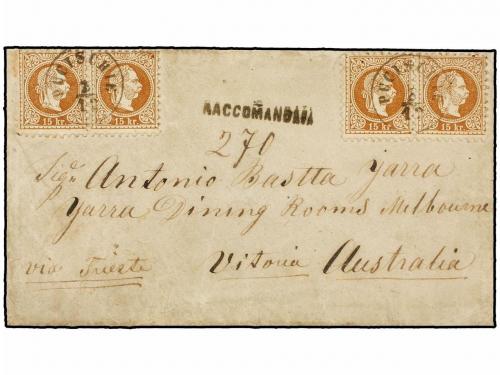 PUCISCHIE
PUCISCHIE
15 kr. 15 kr. 15 kr. 15 kr.
RACCOMANDATA
270
Sigr Antonio Bastta Yarra
Yarra Dining Rooms Melbourne
via Trieste Vitoria Australia